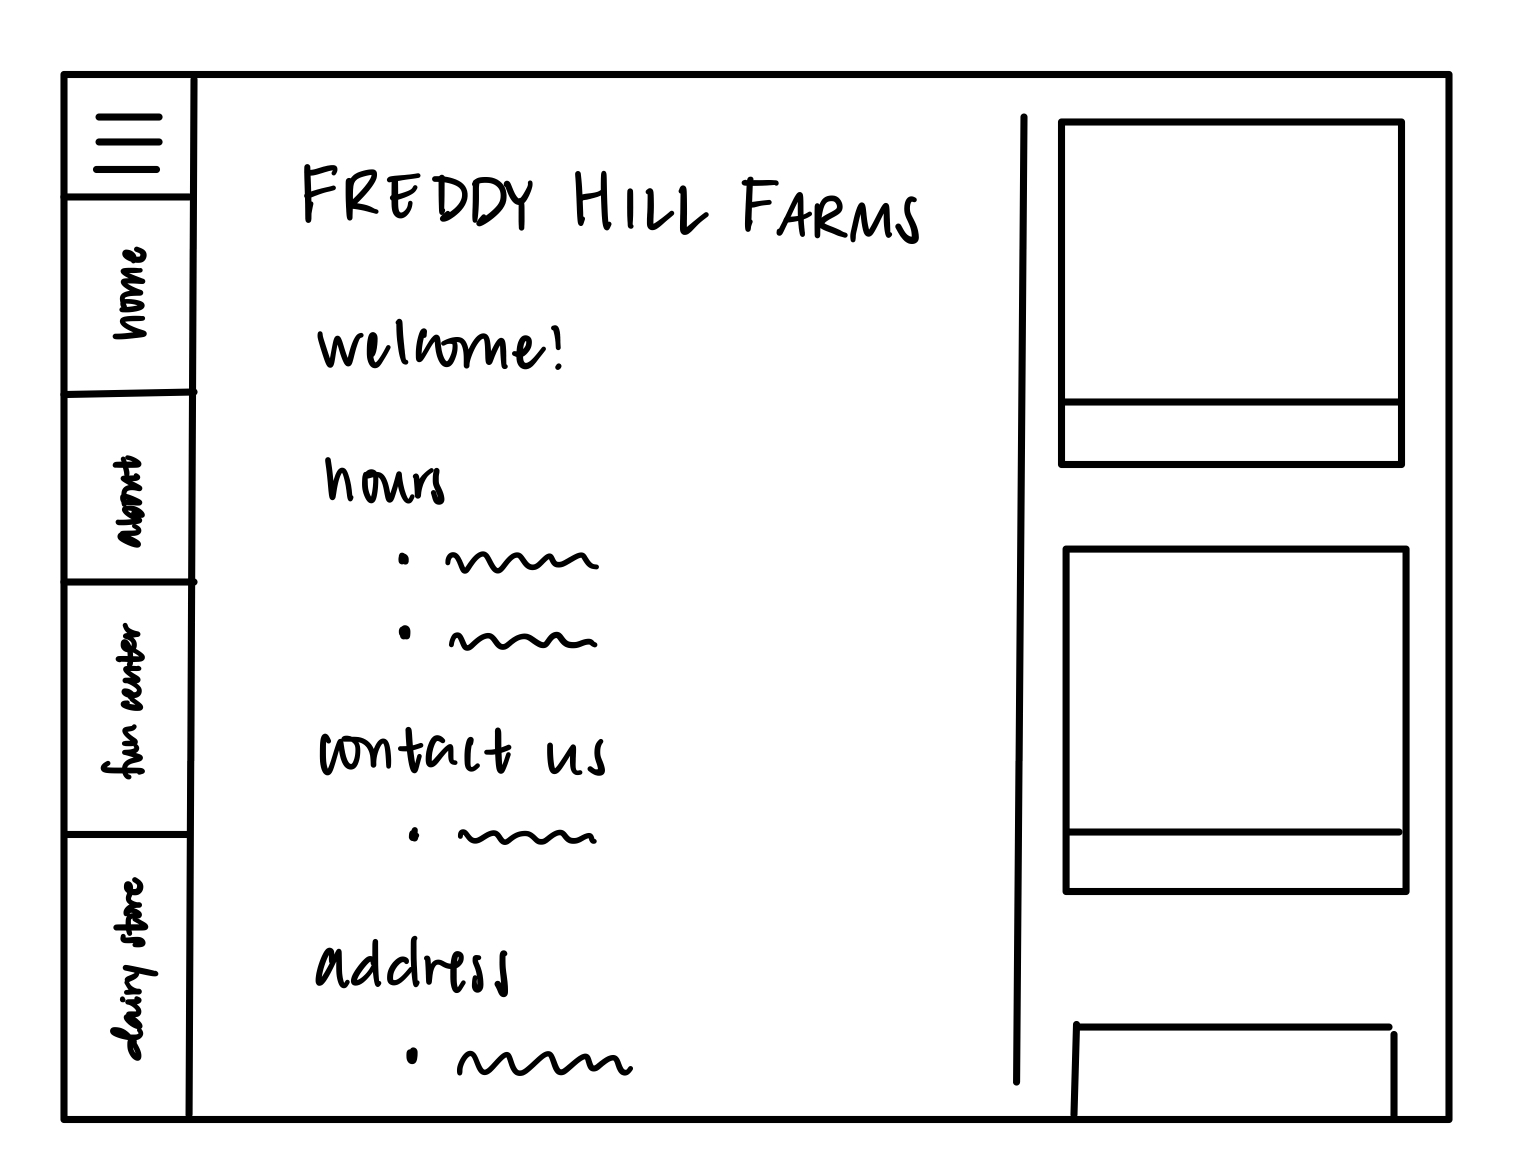 home
about
fun center
dairy store
FREDDY HILL FARMS
welcome!
hours
contact us
address